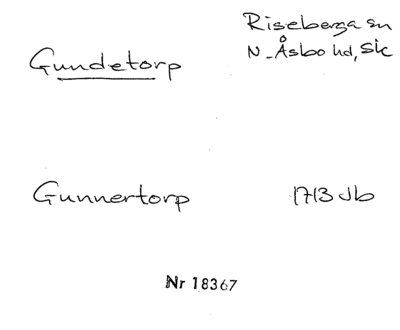 Gundetorp
Riseberga sn
N-Åsbo hd, Sk
Gunnertorp
1713 Jb
Nr 18367